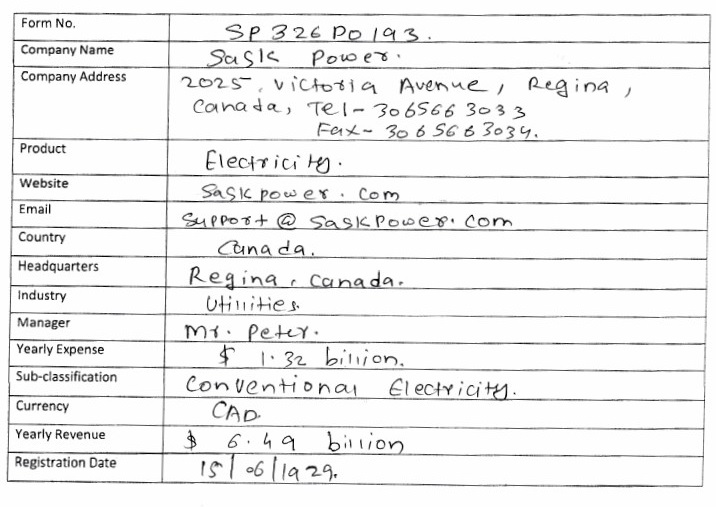 Form No. SP326PO193.
Company Name Sask Power.
Company Address 2025, Victoria Avenue, Regina,
Canada, Tel- 3065663033
Fax- 3065663034.
Product Electricity.
Website Saskpower.com
Email Support@saskpower.com
Country Canada.
Headquarters Regina, Canada.
Industry Utilities.
Manager Mr. Peter.
Yearly Expense $ 1.32 billion.
Sub-classification Conventional Electricity.
Currency CAD.
Yearly Revenue $ 6.49 billion
Registration Date 15/06/1929.